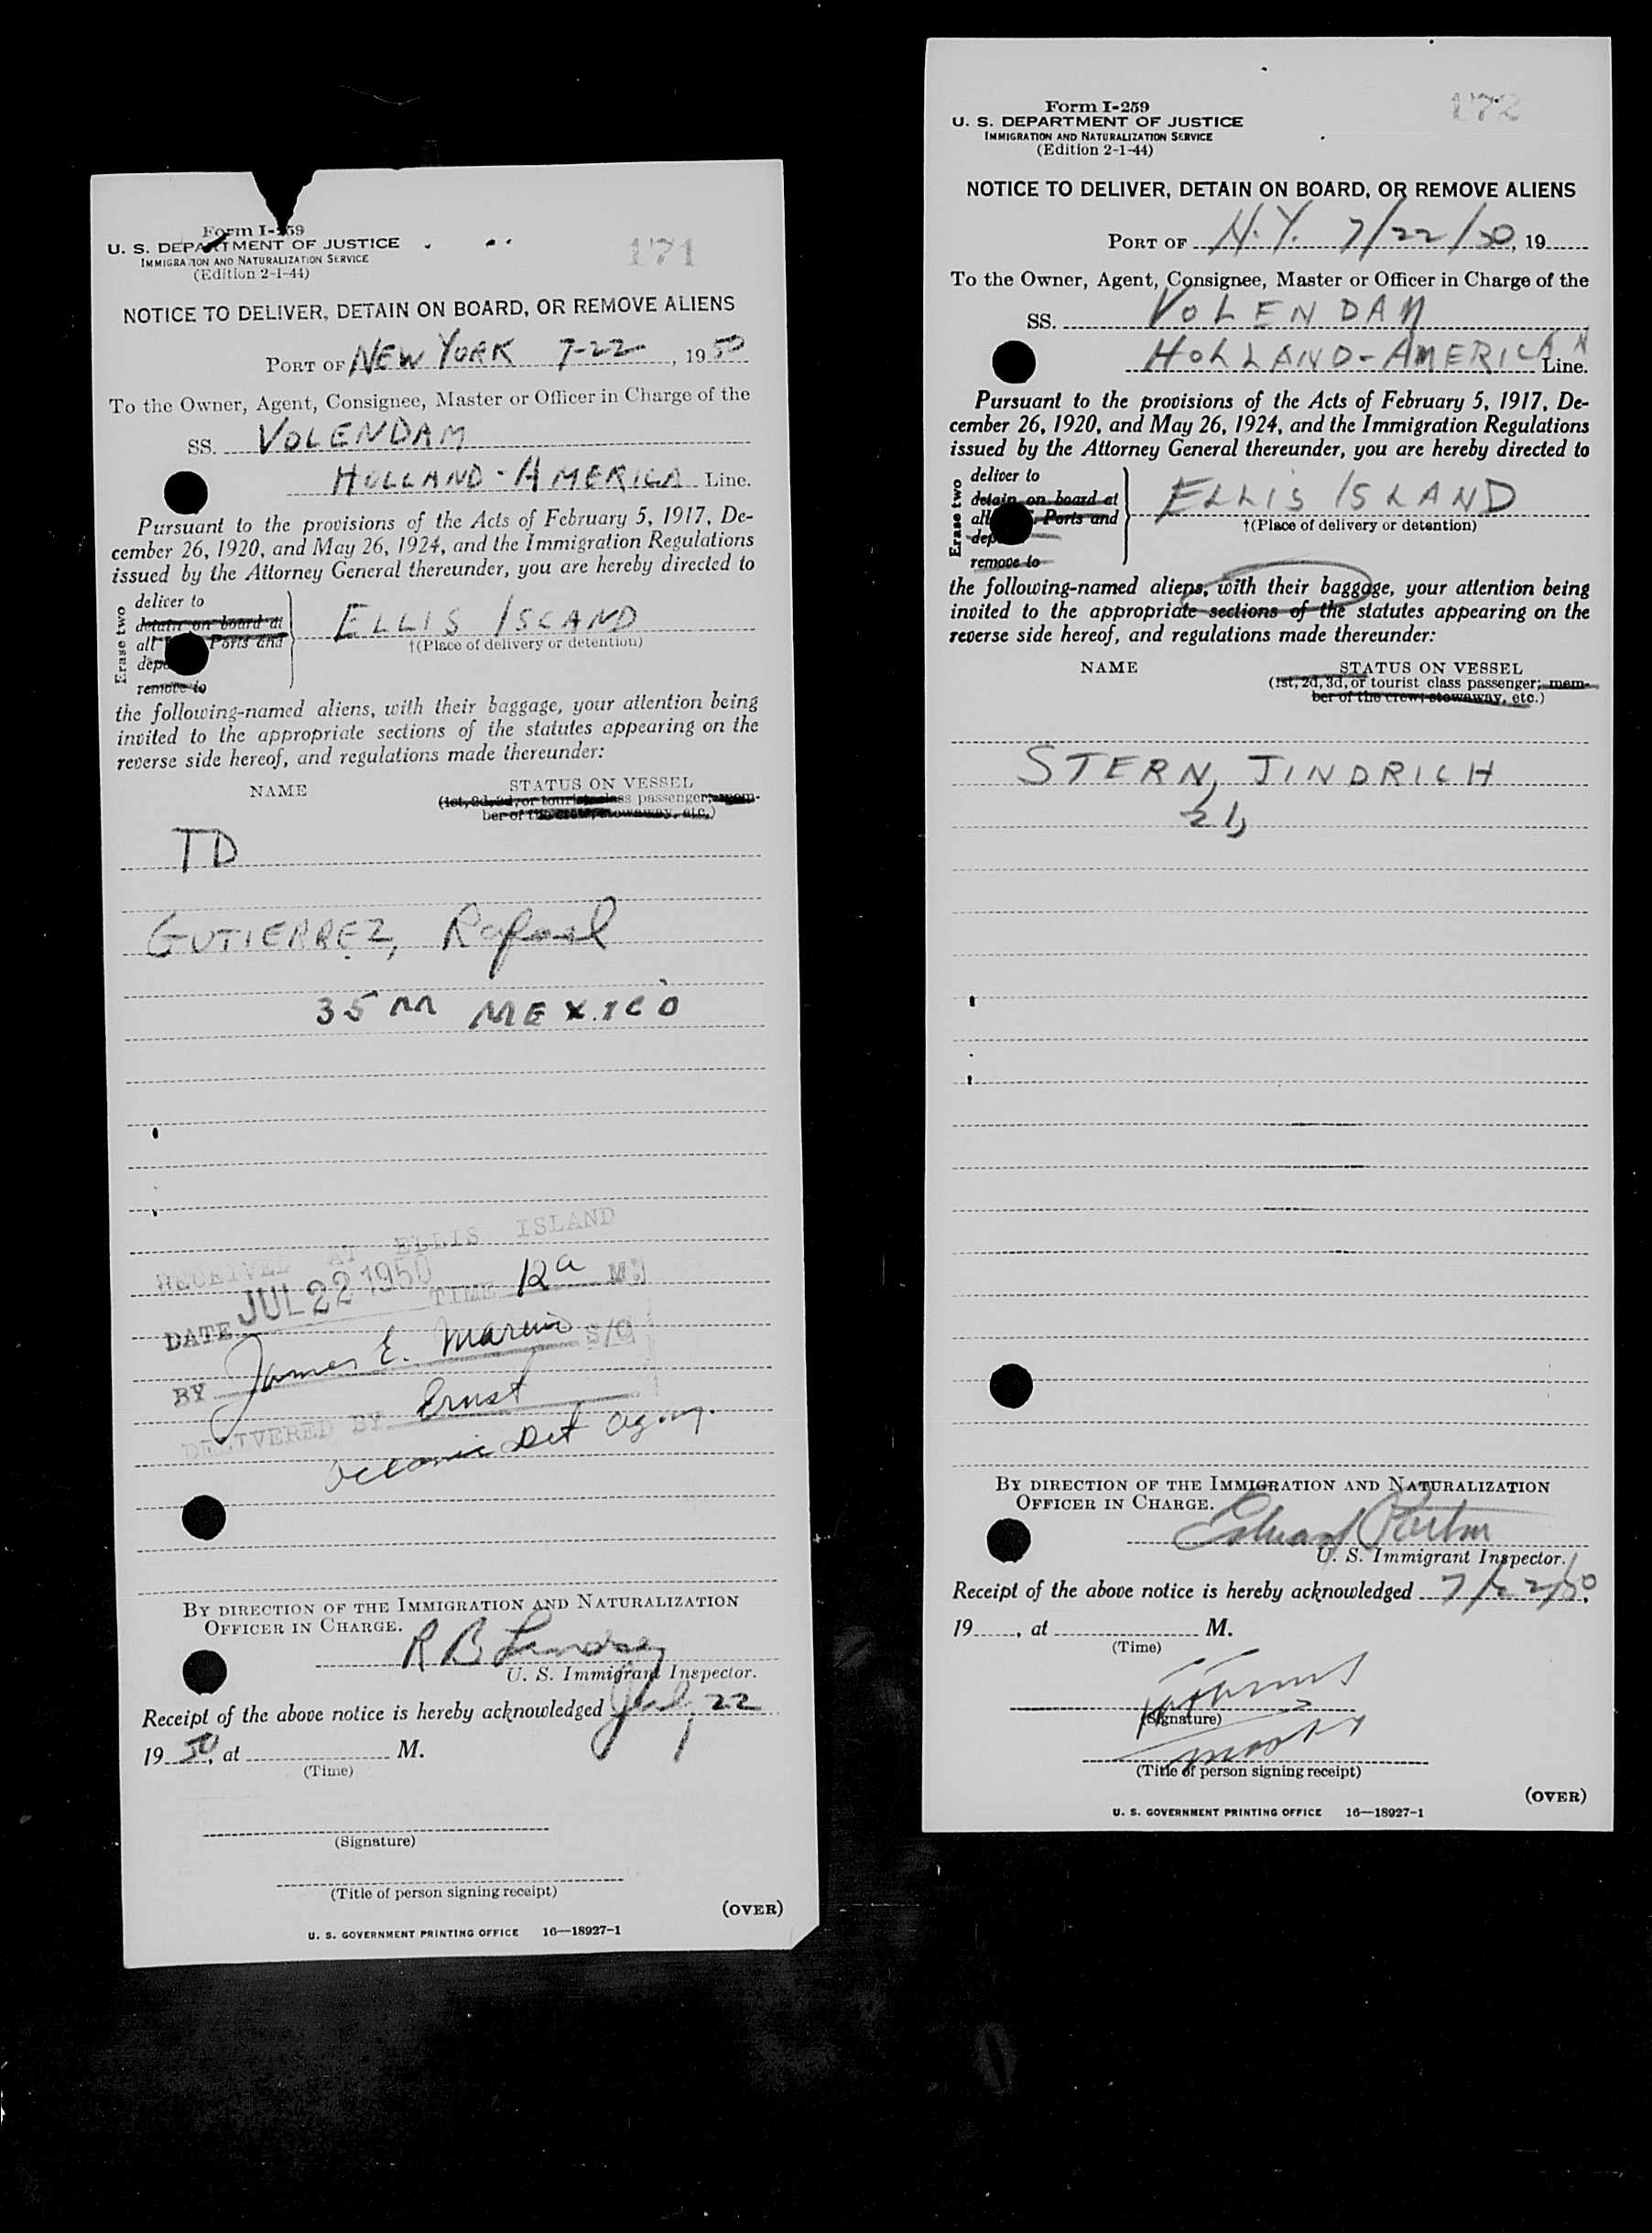 Form I-259
U. S. DEPARTMENT OF JUSTICE
IMMIGRATION AND NATURALIZATION SERVICE
(Edition 2-1-44)
171
NOTICE TO DELIVER, DETAIN ON BOARD, OR REMOVE ALIENS
PORT OF NEW YORK 7-22, 1950
To the Owner, Agent, Consignee, Master or Officer in Charge of the
SS. VOLENDAM
HOLLAND-AMERICA Line.
Pursuant to the provisions of the Acts of February 5, 1917, De-
cember 26, 1920, and May 26, 1924, and the Immigration Regulations
issued by the Attorney General thereunder, you are hereby directed to
Erase two
deliver to
detain on board at
all Ports and
remove to
ELLIS ISLAND
†(Place of delivery or detention)
the following-named aliens, with their baggage, your attention being
invited to the appropriate sections of the statutes appearing on the
reverse side hereof, and regulations made thereunder:
NAME
STATUS ON VESSEL
(1st, 2d, 3d, or tourist class passenger; mem-
ber of the crew; stowaway, etc.)
TD
GUTIERREZ, Rafael
35 M MEXICO
RECEIVED AT ELLIS ISLAND
DATE JUL 22 1950 TIME 12 a M.
BY James E. S/O
DELIVERED BY Ernst
Oceanic Det
BY DIRECTION OF THE IMMIGRATION AND NATURALIZATION
OFFICER IN CHARGE.
R B Lindsey
U. S. Immigrant Inspector.
Receipt of the above notice is hereby acknowledged July 22
19 50, at M.
(Time)
(Signature)
(Title of person signing receipt)
(OVER)
U. S. GOVERNMENT PRINTING OFFICE 16—18927-1
Form I-259
U. S. DEPARTMENT OF JUSTICE
IMMIGRATION AND NATURALIZATION SERVICE
(Edition 2-1-44)
172
NOTICE TO DELIVER, DETAIN ON BOARD, OR REMOVE ALIENS
PORT OF N.Y. 7/22/50, 19
To the Owner, Agent, Consignee, Master or Officer in Charge of the
SS. VOLENDAM
HOLLAND-AMERICAN Line.
Pursuant to the provisions of the Acts of February 5, 1917, De-
cember 26, 1920, and May 26, 1924, and the Immigration Regulations
issued by the Attorney General thereunder, you are hereby directed to
Erase two
deliver to
detain on board at
all Ports and
remove to
ELLIS ISLAND
†(Place of delivery or detention)
the following-named aliens, with their baggage, your attention being
invited to the appropriate sections of the statutes appearing on the
reverse side hereof, and regulations made thereunder:
NAME
STATUS ON VESSEL
(1st, 2d, 3d, or tourist class passenger; mem-
ber of the crew; stowaway, etc.)
STERN, JINDRICH
BY DIRECTION OF THE IMMIGRATION AND NATURALIZATION
OFFICER IN CHARGE.
U. S. Immigrant Inspector.
Receipt of the above notice is hereby acknowledged 7/22/50,
19, at M.
(Time)
(Signature)
(Title of person signing receipt)
(OVER)
U. S. GOVERNMENT PRINTING OFFICE 16—18927-1